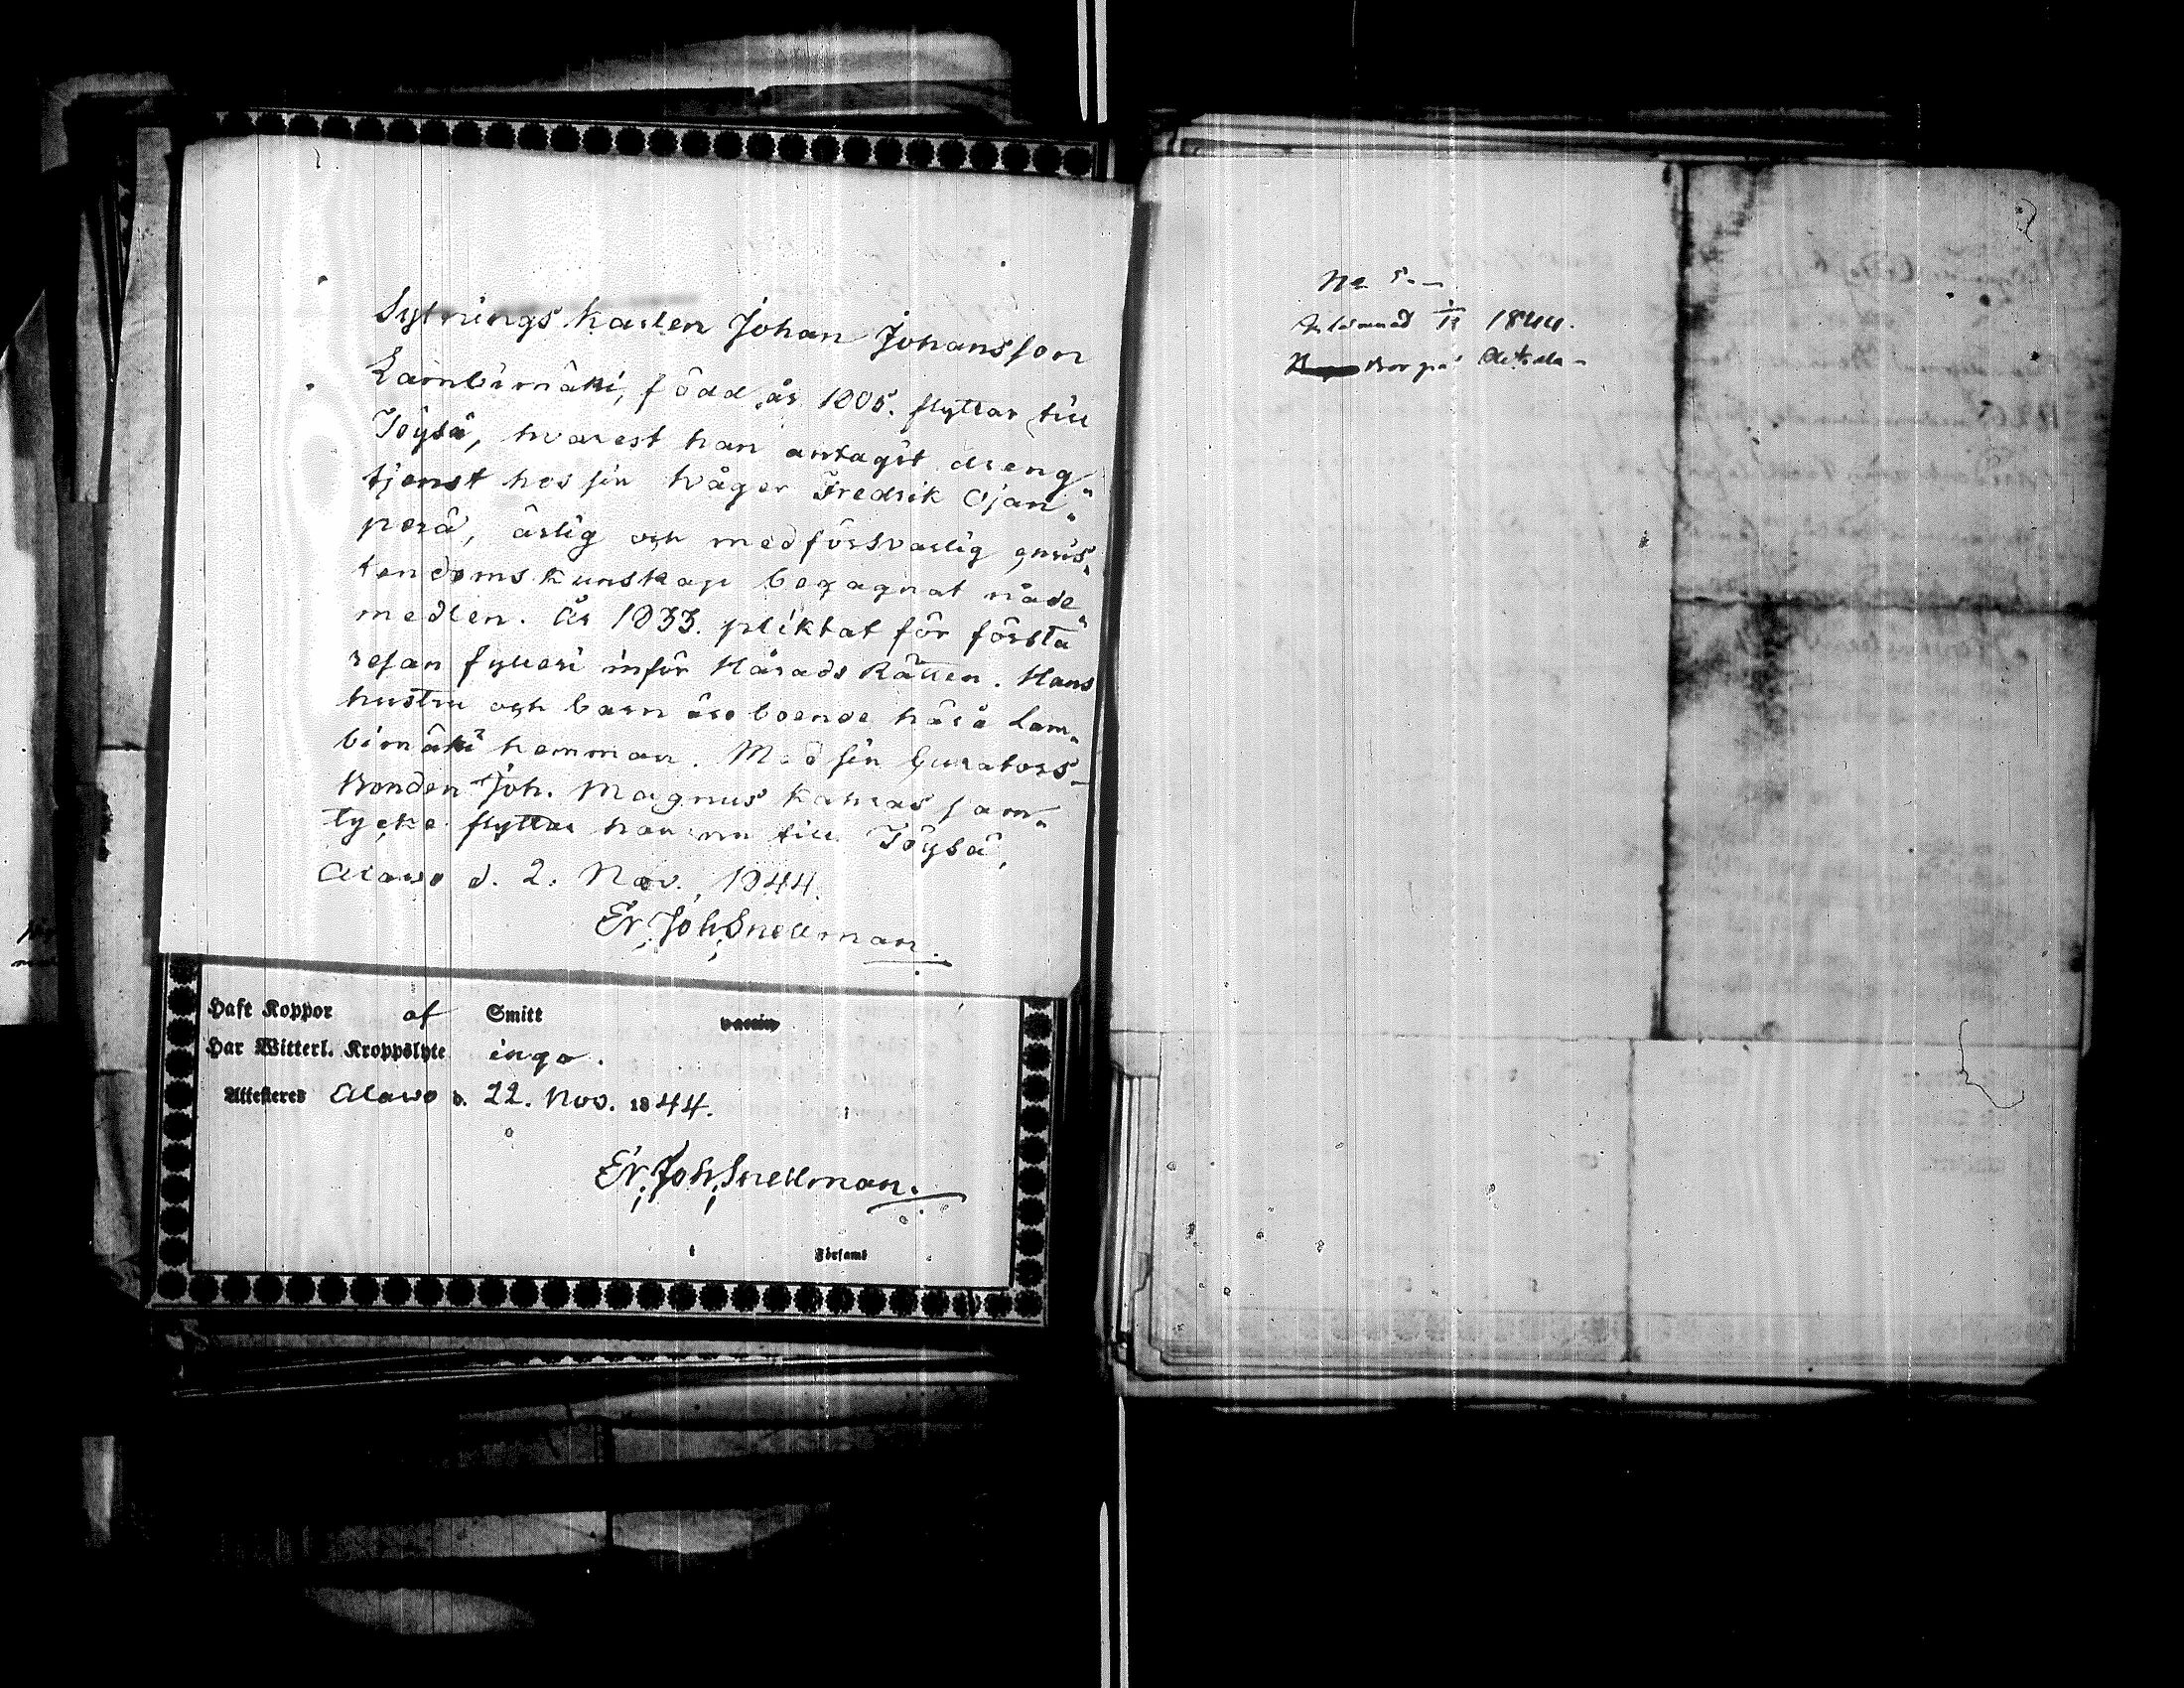 Sytnings Karlen Johan Johansson
Lambimäki, född år 1805. flyttar till
Töysä, hvarest han antagit dreng-
tjenst hos sin Svåger Fredrik Ojan-
perä, ärlig och med försvarlig Chris-
tendoms kunskap begagnat nåde-
medlen. År 1833. pliktat för första
resan fylleri inför Härads Rätten. Hans
hustru och barn äro boende här å Lam-
bimäki hemman. Med sin Curators
Bonden Joh. Magnus Kahras sam-
tycke flyttar han nu till Töysä,
Alawo d. 2. Nov. 1844.
Er. Joh. Snellman
Haft Koppor af Smitt
Har Witterl. Kroppslyte inga.
Attesteres Alawo d. 22. Nov. 1844.
Er. Joh. Snellman.
i Församl
No 5.
1844.
Bor på